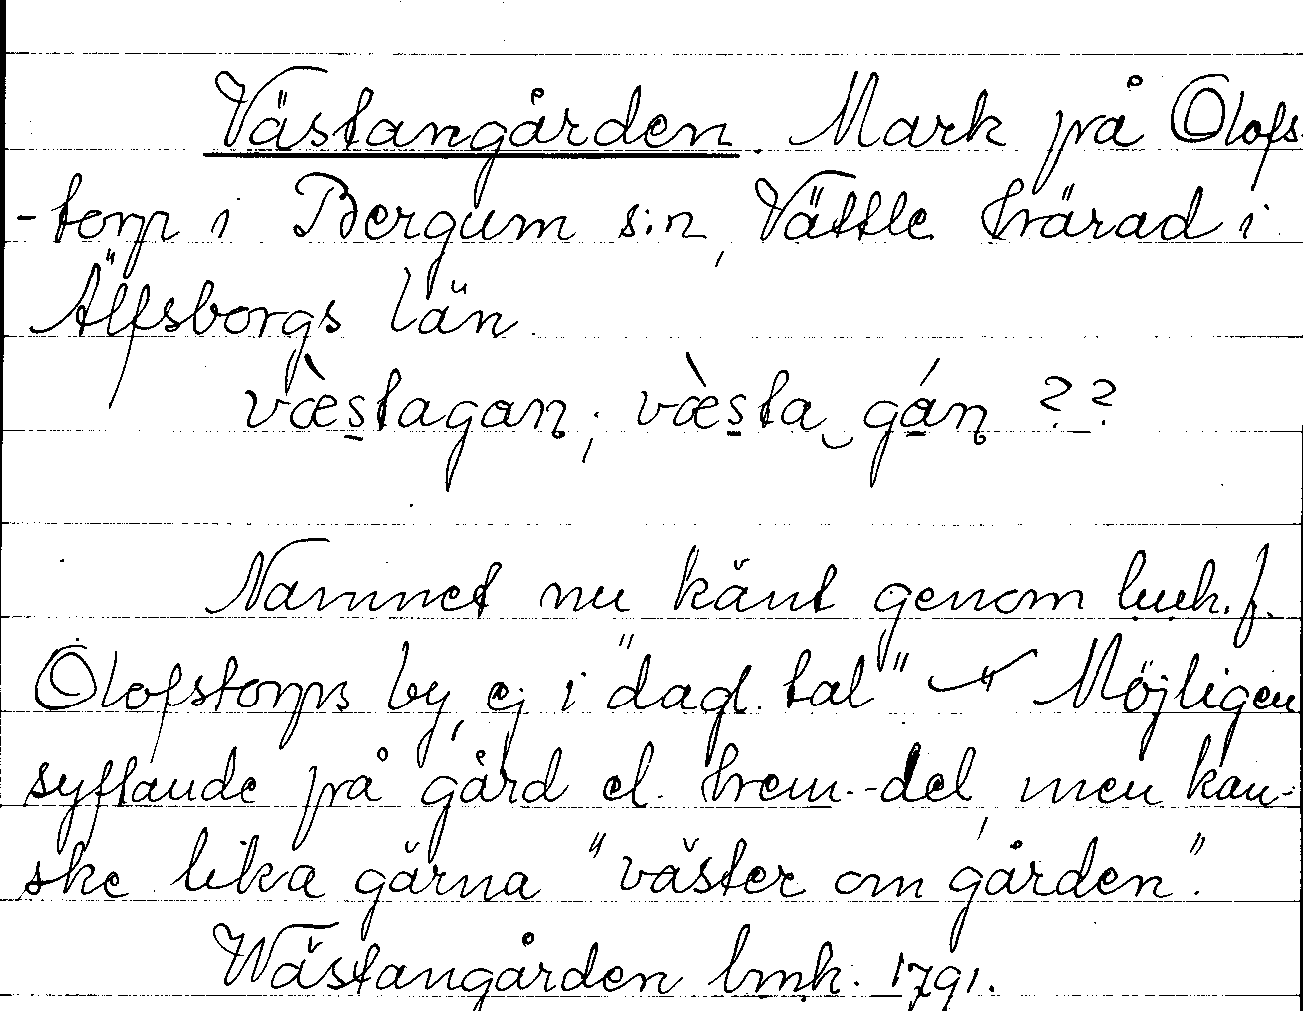 Västangården. Mark på Olofs-
-torp i Bergum s:n, Vättle härad i
Älfsborgs län.
væ̀stagan; væ̀sta gán ??
Namnet nu känt genom lmk. f.
Olofstorps by, ej i "dagl. tal" Möjligen
syftande på gård el. hem.-del, men kan-
ske lika gärna "väster om gården".
Wästangården lmk. 1791.